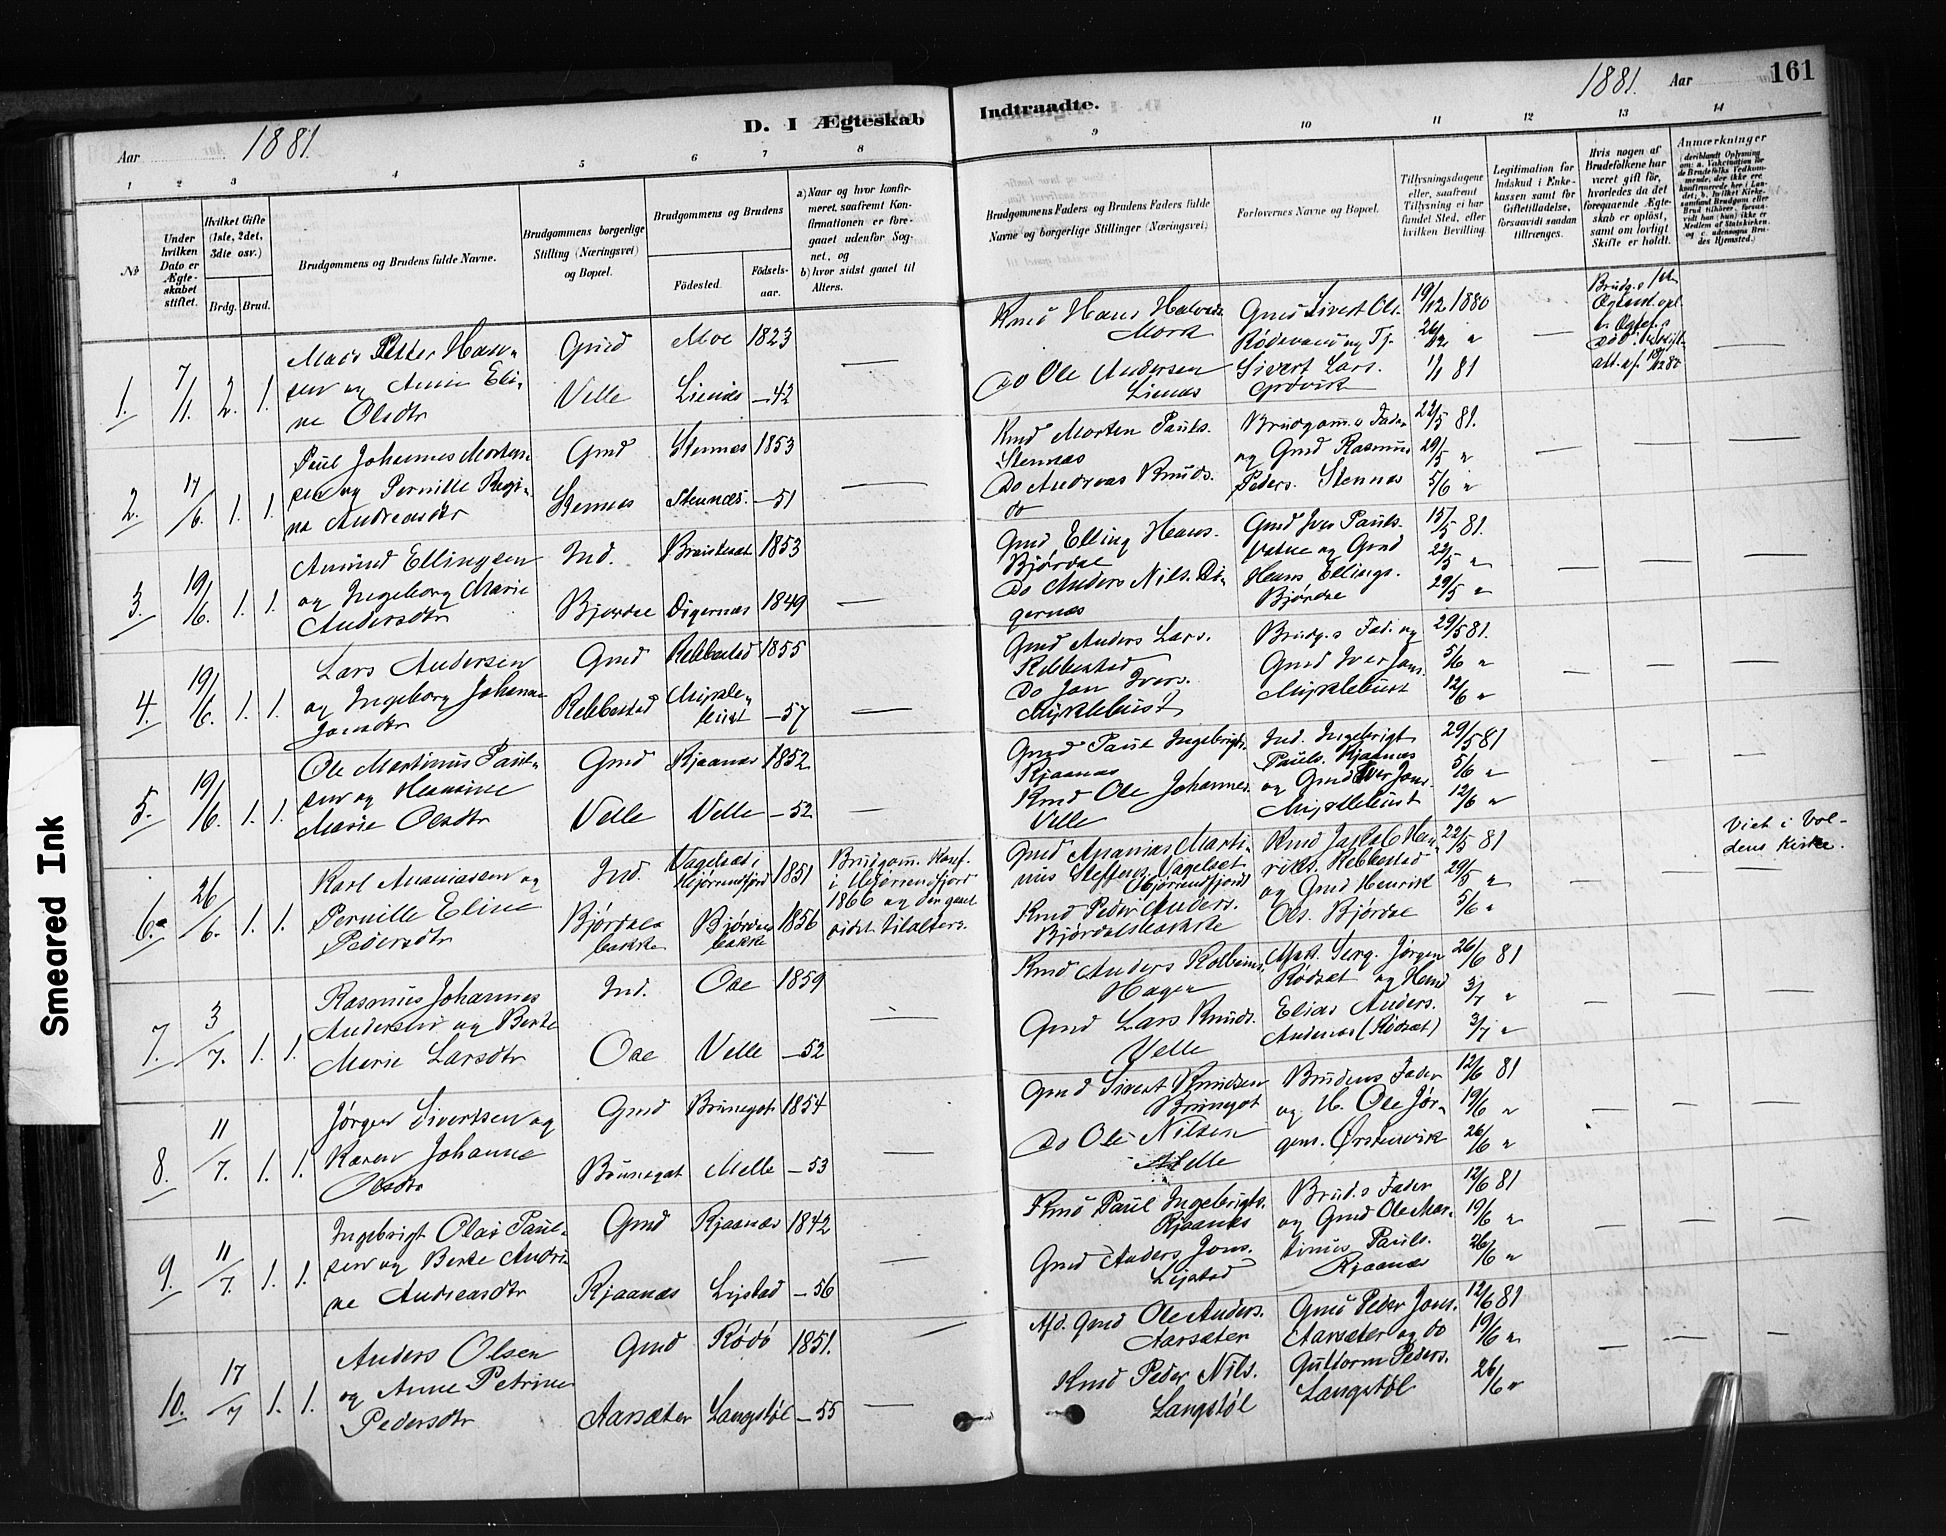 Smeared Ink
Aar 1881.
D. I Ægteskab
Indtraadte.
1881. Aar
161
1 2 3 4 5 6 7 8
9 10 11 12 13 14
No
Under hvilken Dato er Ægteskabet stiftet.
Hvilket Gifte (1ste, 2det, 3dte osv.)
Brdg. Brud.
Brudgommens og Brudens fulde Navne.
Brudgommens borgerlige Stilling (Næringsvei) og Bopæl.
Brudgommens og Brudens
Födested.
Födselsaar.
a) Naar og hvor konfirmeret, saafremt Konfirmationen er foregaaet udenfor Sognet, og
b) hvor sidst gaaet til Alters.
Brudgommens Faders og Brudens Faders fulde Navne og borgerlige Stillinger (Næringsvei)
Forlovernes Navne og Bopæl.
Tillysningsdagene eller, saafremt Tillysning ei har fundet Sted, efter hvilken Bevilling.
Legitimation for Indskud i Enkekassen samt for Giftetilladelse, forsaavidt saadan tiltrænges.
Hvis nogen af Brudefolkene har været gift för, hvorledes da det foregaaende Ægteskab er oplöst, samt om lovligt Skifte er holdt.
Anmærkninger
1. 7/1. 2. 1.
Mads Petter Hansen og Anne Eline Olsdtr
Gmd Velle
Moe 1823
Lienæs —42
—
Kmd Hans Halvards. Mork
Do Ole Andersen Lienæs
Gmd Sivert Ols. Rødevand og Tj. Sivert Lars.
19/12 1880
26/12 "
1/1 81
—
—
2. 17/6. 1. 1.
Paul Johannes Mortensen og Pernille Regine Andreasdtr
Gmd Stennes
Stennæs 1853
Stennæs. —51
—
Kmd Morten Pauls. Stennæs
Do Andreas Knuds. do
Brudgom.s Fader og Gmd Rasmus Peders. Stennæs
22/5 81.
29/5 "
5/6 "
— — —
3. 19/6. 1. 1.
Amund Ellingsen og Ingeborg Marie Andersdtr
Ind. Bjørdal
1853
Digernæs 1849
—
Gmd Elling Hans. Bjørdal
Do Anders Nils. Digernæs
Gmd Iver Pauls. Vatne og Gmd Hans Ellings. Bjørdal
15/5 81.
22/5 "
29/5 "
— — —
4. 19/6. 1. 1.
Lars Andersen og Ingeborg Johanne Jansdtr
Gmd Rebbestad
Rebbestad 1855
Myklebust —57
—
Gmd Anders Lars. Rebbestad
Do Jan Ivers. Myklebust
Brudg.s Fad. og Gmd Iver Jans. Myklebust
29/5 81.
5/6 "
12/6 "
— — —
5. 19/6. 1. 1.
Ole Martinus Paulsen og Hansine Marie Olsdtr
Gmd Velle
Kjaanæs 1852
Velle —52
—
Gmd Paul Ingebrigts. Kjaanæs
Kmd Ole Johannes. Velle
Ind. Ingebrigt Pauls. Kjaanæs og Gmd Iver Jans. Myklebust
29/5 81
5/6 "
12/6 "
— — —
6. 26/6. 1. 1.
Karl Ananiassen og Pernille Eline Pedersdtr
Ind. Bjørdalsbakke
Vagelsæt i Hjørrendfjord 1851
Bjørdalsbakke 1856
Brudgom. Konf. i Hjørrendfjord 1866 og der gaaet sidst til alters.
Gmd Ananias Martinus Steffens. Vagelsæt Hjørrendfjord
Kmd Peder Anders. Bjørdalsbakke
Kmd Jakob Henriks. Rebbestad og Gmd Henrik Ols. Bjørdal
22/5 81
29/5 "
5/6 "
— —
Viet i Voldens Kirke.
7. 3/7. 1. 1.
Rasmus Johannes Andersen og Berte Marie Larsdtr
Ind. Ose
Ose 1859
Velle —52
—
Kmd Anders Kolbeins. Hagen
Gmd Lars Knuds. Velle
Serg. Jørgen Rødsæt og Elias Anders. Andenæs (Rødsæt)
26/6 81
3/7 "
3/7 "
— — —
8. 11/7. 1. 1.
Jørgen Sivertsen og Karen Johanne Olsdtr
Gmd Brunegot
Brunegot 1854
Melle —53
—
Gmd Sivert Knudsen Brunegot
Do Ole Nilsen Melle
Brudens Fader og Ole Jørgens. Ørstenvik
12/6 81
19/6 "
26/6 "
— — —
9. 11/7. 1. 1.
Ingebrigt Olas Paulsen og Berte Andrine Andreasdtr
Gmd Kjaanæs
Kjaanæs 1842
Ljystad —56
—
Kmd Paul Ingebrigts. Kjaanæs
Gmd Anders Jons. Ljystad
Brud.s Fader og Gmd Ole Martinus Pauls. Kjaanæs
12/6 81
19/6 "
26/6 "
— — —
10. 17/7 1. 1.
Anders Olsen og Anne Petrine Pedersdtr
Gmd Aarsæter
Rødø 1851.
Langstøl —55
—
Afd. Gmd Ole Anders. Aarsæter
Kmd Peder Nils. Langstøl
Gmd Peder Jons. Aarsæter og do Guttorm Peders. Langstøl
12/6 81
19/6 "
26/6 "
— — —